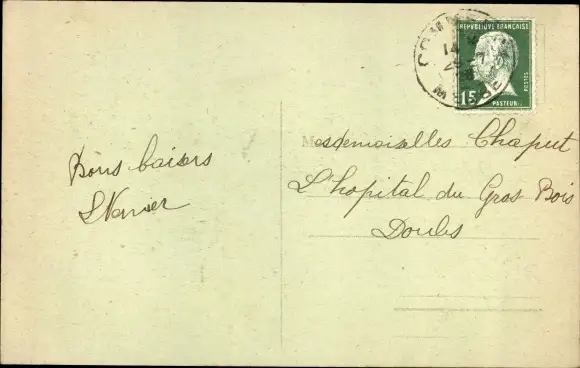 Bons baisers
LVernier
RÉPUBLIQUE FRANÇAISE
15c
POSTES
PASTEUR
14
Mesdemoiselles Chaput
L'hopital du Gros Bois
Doubs